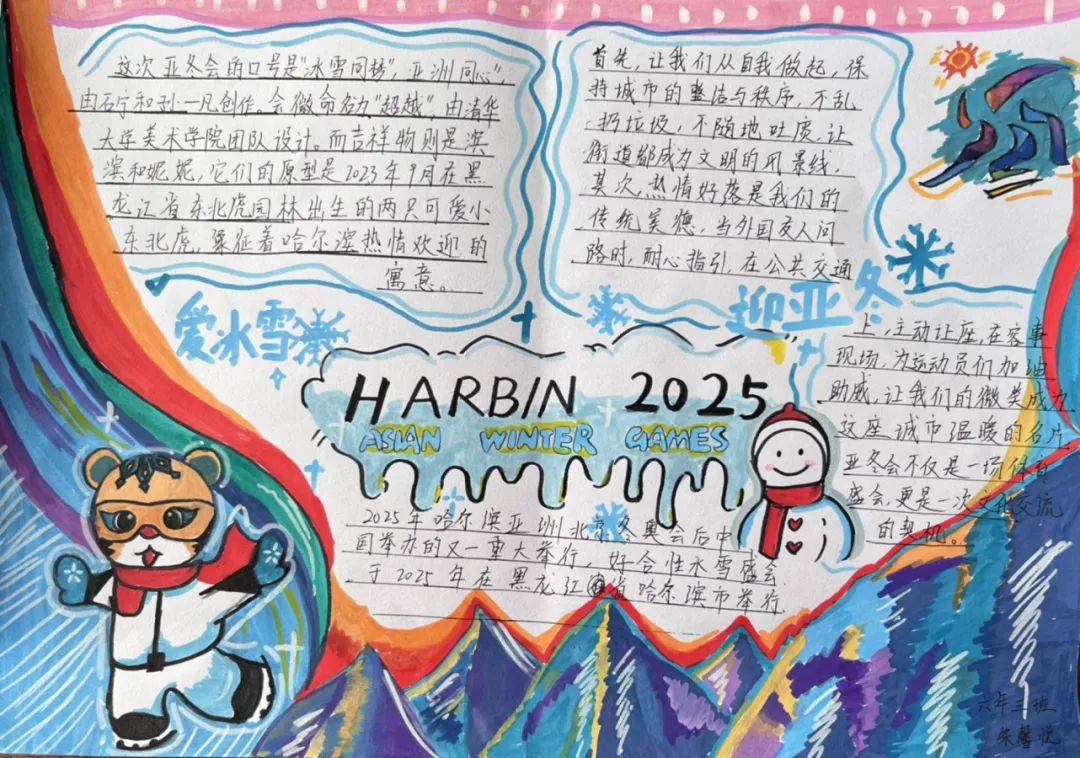 这次亚冬会的口号是"冰雪同梦",亚洲同心"
由石宁和孙一凡创作。会徽命名为"超越",由清华
大学美术学院团队设计。而吉祥物则是滨
滨和妮妮,它们的原型是2023年9月在黑
龙江省东北虎园林出生的两只可爱小
东北虎,象征着哈尔滨热情欢迎的
寓意。
首先,让我们从自我做起,保
持城市的整洁与秩序,不乱
扔垃圾,不随地吐质,让
街道都成为文明的风景线,
其次,热情好落是我们的
传统美德,当外国友人问
路时,耐心指引,在公共交通
上,主动让座,在容事
现场,为运动员们加油
助威,让我们的微美成为
这座城市温暖的名片
亚冬会不仅是一场体育
盛会,更是一次文化交流
的契机。
爱冰雪
迎亚冬
HARBIN 2025
ASIAN WINTER GAMES
2025年哈尔滨亚洲北京冬奥会后中
国举办的又一重大举行,好合性冰雪盛会
于2025年在黑龙江省哈尔滨市举行
六年三班
朱馨悦